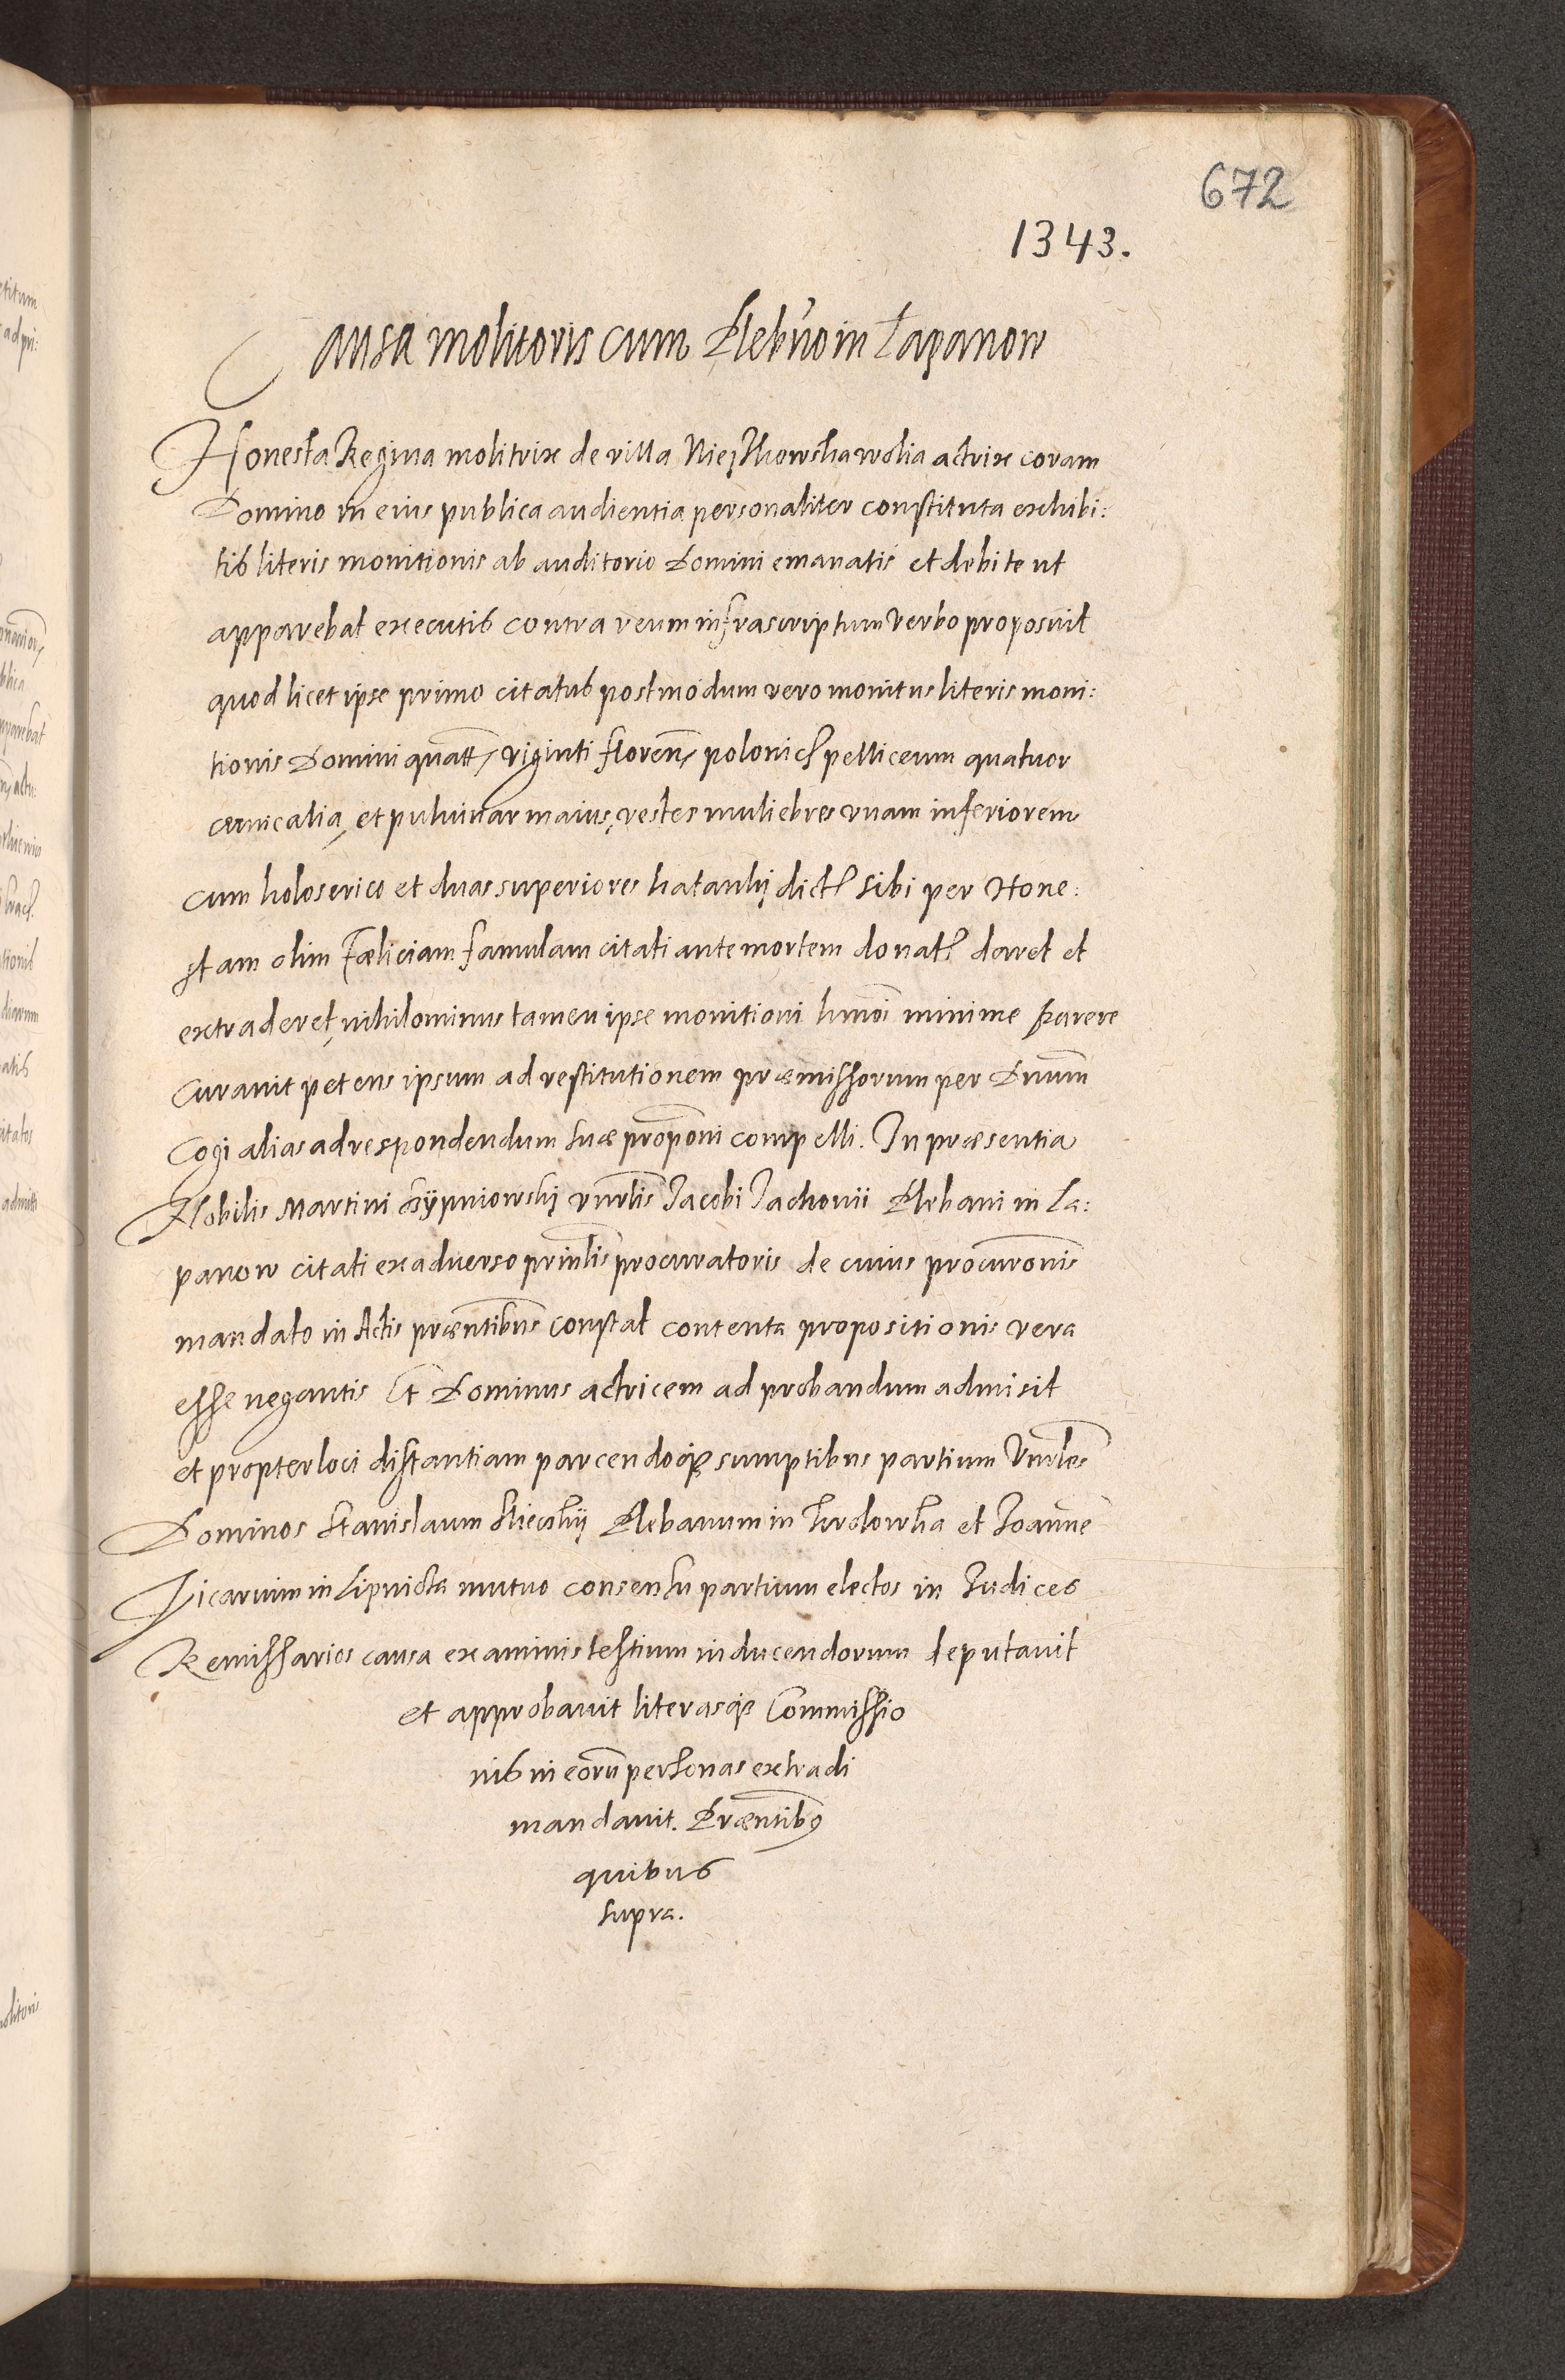 672
1343.
Causa molitoris cum Plebno in Łapanow
Honesta Regina molitrix de villa actrix coram
Domino in eius publica audientia personaliter constituta exhibi:
tis literis monitionis ab auditorio Domini emanatis et debite ut
apparebat executis contra reum infrascriptum verbo proposuit
quod licet ipse primo citatus postmodum vero monitus literis moni:
tionis Domini quatt, viginti floren, polonicł pelliceum quatuor
cervicalia, et pulvinar maius, vestes muliebres unam inferiorem
cum holoserico et duas superiores dictł sibi per Hone:
stam olim Fæliciam famulam citati ante mortem donatł daret et
extraderet, nihilominus tamen ipse monitioni hmoi minime parere
Curavit petens ipsum ad restitutionem præmissorum per Dnum
Cogi alias ad respondendum suæ propōni compelli. In præsentia
Nobilis Martini vnrlis Jacobi Jachovii Plebani in La:
panow citati ex adverso prinlis procuratoris de cuius procurōnis
mandato in Actis præntibus constat contenta propositionis vera
esse negantis Et Dominus actricem ad probandum admisit
et propter loci distantiam parcendoq sumptibus partium Vnrles
Dominos Stanislaum Plebanum in et Joanne
Vicarium in Lipnicza mutuo consensu partium electos in Judices
Remissarios causa examinis testium inducendorum deputavit
et approbavit literasq Commissio
nis in eorū personas extradi
mandavit. Præntibus
quibus
supra.